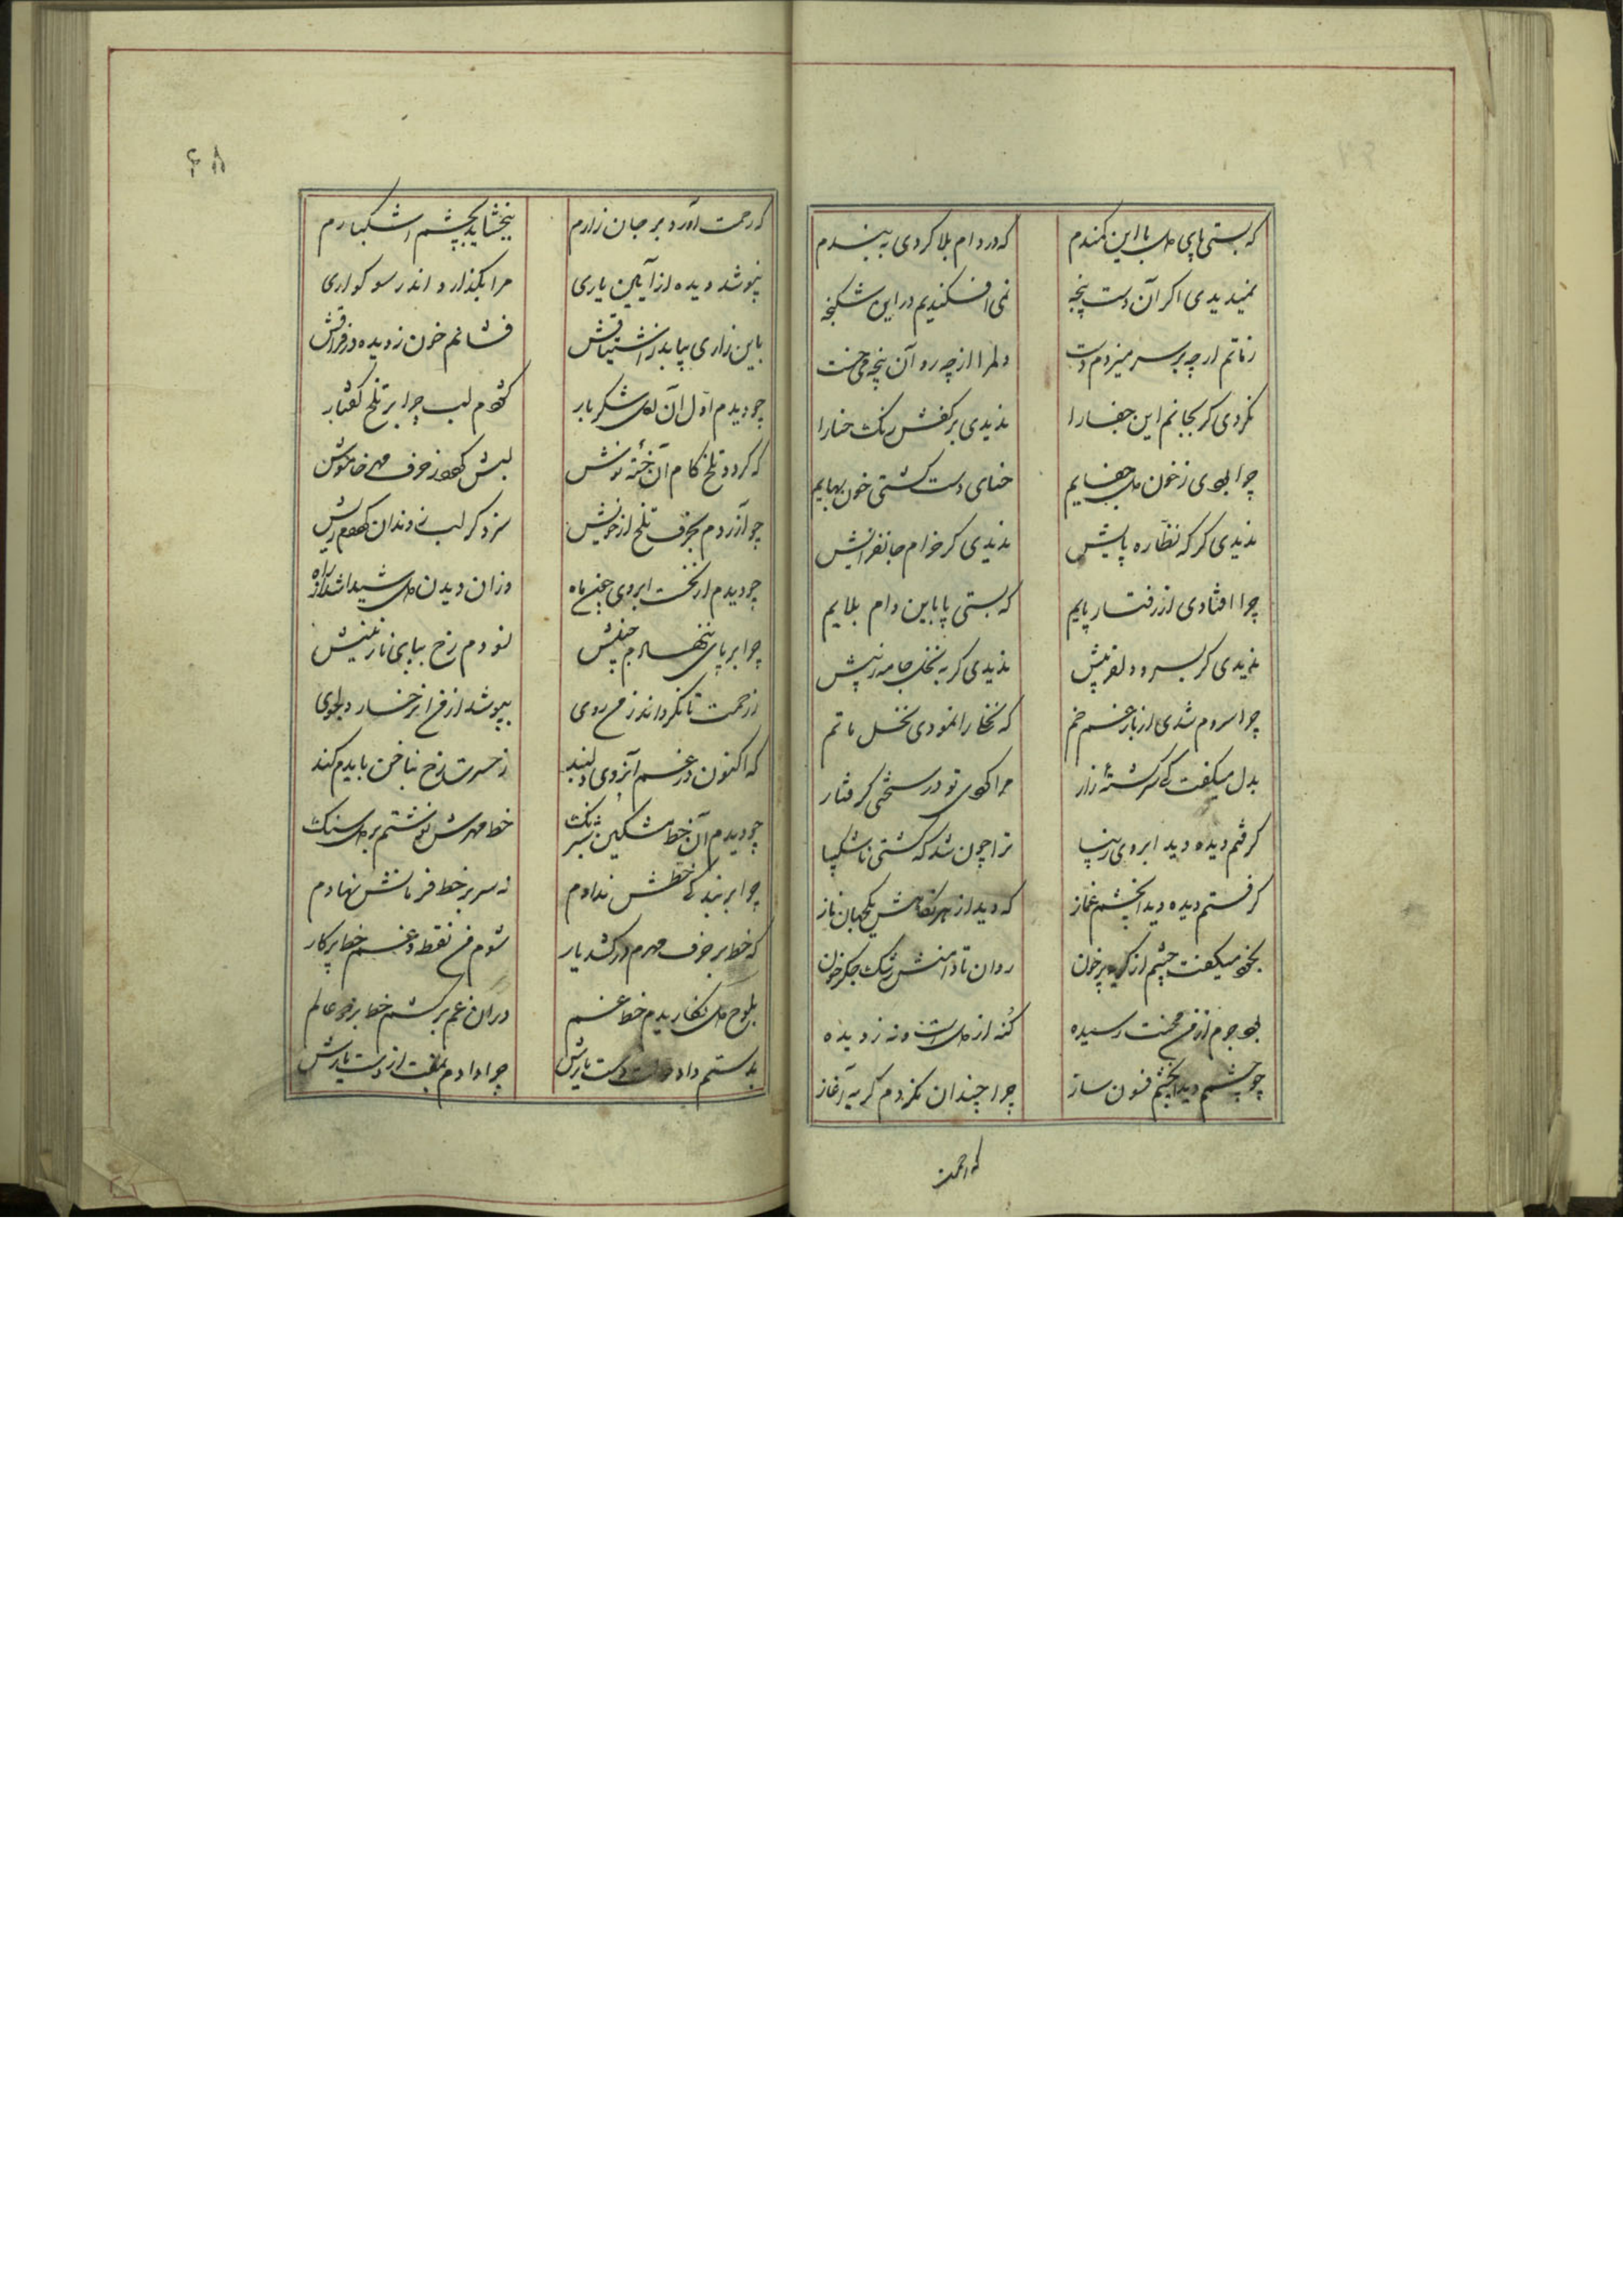 که بستی پای دل با این کمندم که در دام بلا کردی به بندم
نمیدیدی اگر آن دست پنجه نمی افکندیم در این شکنجه
زماتم ار چه بر سر میزدم دست دلم را از چه رو آن پنجه
نکردی گر بجانم این جفا را ندیدی بر کفش رنگ حنا را
چرا بودی ز خون دل حنایم حنای دست گشتی خون بهایم
ندیدی گر که نظاره پایش ندیدی گر خرام جانفزایش
چرا افتادی از رفتار پایم که بستی پا باین دام بلایم
ندیدی گر بسرو دلفریبش ندیدی گر به نخل جامه زیبش
چرا سروم شدی از بار غم خم که نخل را نمودی نخل ماتم
بدل میگفت کی سرگشتۀ زار مرا کردی تو در سختی گرفتار
گرفتم دیده دید ابروی زیبا ترا چون شد که گشتی ناشکیبا
گرفتم دیده دید آنچشم غماز که دید از هر نگاهش یکجهان ناز
بخود میگفت چشم از گریه پر خون روان تا دامنش رشک جگر خون
بود جرم از من محنت رسیده گنه از دل است و نه ز دیده
چو چشمم دید آنچشم فسون ساز چرا چندان نکردم گریه آغاز
که رحمت
۴۸
که رحمت آورد بر جان زارم ببخشاید بچشم اشکبارم
نپوشد دیده از آیین یاری مرا بگذارد اندر سوکواری
باین زاری بپاید ز اشتیاقش فشانم خون ز دیده در فراقش
چو دیدم اول آن لعل شکربار گشودم لب چرا بر تلخ گفتار
که کرد تلخ کام آن نوش لبش کرد ز حرف خاموش
چو آزردم بحرف تلخ از خویش سزد گر لب ز دندان کردم ریش
چو دیدم از نخست ابروی چون ماه وزان دیدن دل شیدا شد از راه
چرا بر پای ننهادم جبینش نسودم رخ بپای نازنینش
ز رحمت تا نگرداند ز من روی بپوشد از من آن رخسار دلجوی
که اکنون در غم آنروی دلبند ز حسرت رخ بناخن بایدم کند
چو دیدم آن خط مشکین شبرنگ خط مهرش نوشتم بر دل سنگ
چرا بر بندگی خطش ندادم نه سر بر خط فرمانش نهادم
که خط بر حرف مهرم درکشد یار شوم من نقطه و غم خط پرکار
بلوح دل نگاریدم خط غم در آن غم برکشم خط بر دو عالم
بدستم داد دولت دست یارش چرا دادم بمفت از دست یارش